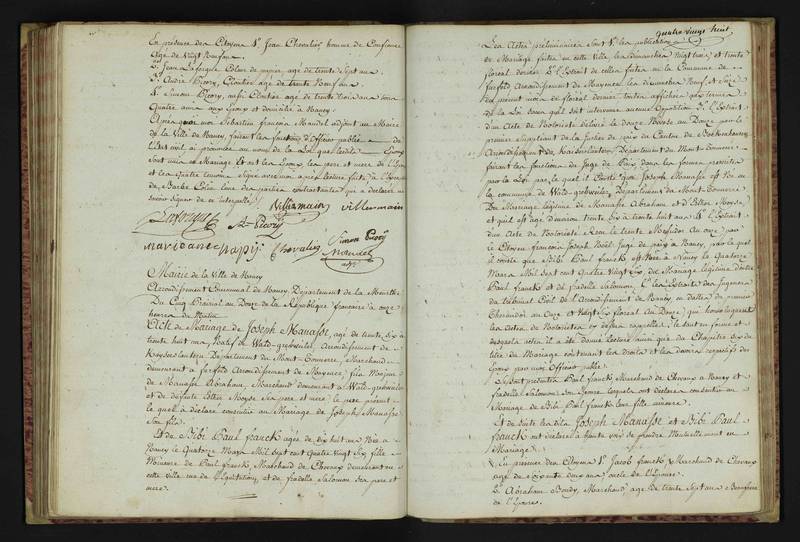 En présence des Citoyens 1° Jean Chevalier homme de Confiance
âgé de Vingt Neuf ans.
2° Jean Lafosque Coleur de papier, agé de trente Sept ans.
3° André Picory, Cloutier age de trente Neuf ans.
4° Simon Picory, aussi Cloutier age de trente trois ans tous
quatre amis aux Epoux et domicilié à Nancy.
Après quoi moi Sébastien françois Mandel adjoint au Maire
de la Ville de Nancy, faisant les fonctions d'Officier public de
l'Etat civil ai prononcé au nom de la Loi que lesdits Epoux
Sont unis en Mariage Et ont les Epoux, les pere et mere de l'Epoux
et les Quatre temoins Signé avec moi après lecture faite à l'Exception
de Barbe l'une des parties contractantes qui a déclaré ne
savoir signer de ce interpellée
Villermain villermain
Lafosque A. Picory
mavidance papig Chevalier Simon Picory
Mandel
adjt
Mairie de la Ville de Nancy
Arrondissement Communal de Nancy, Département de la Meurthe
Du Cinq Prairial an Douze de la République française à onze
heures du Matin
Acte de Mariage de Joseph Manasse, agé de trente six à
trente huit ans, Natif de Wald-grehweiler, Arrondissement de
Kayserslautern Département du Mont-Tonnerre, Marchand
demeurant à farfeld Arrondissement de Mayence, fils Majeur
de Manasse Abraham, Marchand demeurant à Wald-grehweiler
et de défunte Better Moyse ses pere et mere, le pere présent
le quel a déclaré consentir au Mariage de Joseph Manasse
Son fils.
Et de Bibi Paul franck agée de dix huit ans Née à
Nancy le Quatorze Mars Mil Sept cent Quatre Vingt Six fille
Mineure de Paul franck, Marchand de Chevaux demeurant en
cette Ville rue de l'Equitation, et de fradelle Salomon ses pere et
mere.
quatre vingt huit
Les Actes préliminaires Sont 1° les publications
de Mariage faites en cette Ville les Dimanches Vingt trois et trente
floreal dernier 2° l'Extrait de celles faites en la Commune de
farfeld, Arrondissement de Mayence, les dimanches Neuf et Seize
du present mois de floreal dernier toutes affichées aux termes
de la Loi sans qu'il soit intervenu aucune Opposition 3° l'Extrait
d'un Acte de Notoriété délivré le douze Nivose an Douze par le
premier Suppléant de la Justice de paix du Canton de Rockenhausen,
Arrondissement de Kayserslautern, Département du Mont-Tonnerre
faisant les fonctions de Juge de Paix, dans les formes prescrites
par la Loi par le quel il Conste que Joseph Manasse est Né en
la commune de Wald-grehweiler, Département du Mont-Tonnerre
Du Mariage légitime de Manasse Abraham et de Better Moyse,
et qu'il est agé d'environ trente six à trente huit ans 4° l'Extrait
d'un Acte de Notoriété Reçu le trente Messidor An onze par
le Citoyen françois Joseph Noël Juge de paix à Nancy, par le quel
il conste que Bibi Paul franck est Née à Nancy le Quatorze
Mars Mil Sept cent Quatre Vingt Six, du Mariage légitime d'entre
Paul franck et de fradelle Salomon, 5° les Extraits des Jugemens
du tribunal Civil de l'Arrondissement de Nancy en dattes du premier
Thermidor an Onze et Vingt Six floreal an Douze, qui homologuent
les Actes de Notoriétés ci dessus rappellés, le tout en forme et
desquels actes il a été donné lecture ainsi que du Chapitre Six du
titre du Mariage contenant les droits et les devoirs respectifs des
Epoux par moi Officier public.
Se sont présentés Paul franck Marchand de Chevaux à Nancy et
fradelle Salomon Son Epouse lesquels ont déclaré consentir au
Mariage de Bibi Paul franck leur fille mineure.
Et de Suite lesdits Joseph Manasse et Bibi Paul
franck ont déclaré a haute voix se prendre Mutuellement en
Mariage.
En presence des Citoyens 1° Jacob franck Marchand de Chevaux
agé de soixante douze ans oncle de l'Epouse.
2° Abraham Bondy, Marchand agé de trente Sept ans Beaufrere
de l'Epouse.